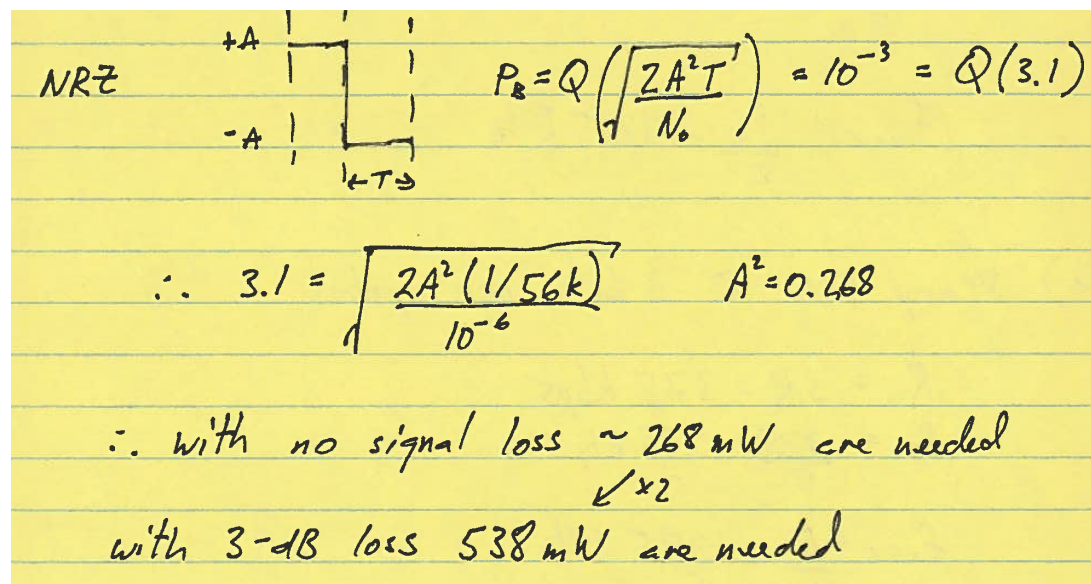 +A
NRZ
-A
←T→
P_B = Q(√(2A²T / N₀)) = 10⁻³ = Q(3.1)
∴ 3.1 = √(2A²(1/56k) / 10⁻⁶) A² = 0.268
∴ with no signal loss ~ 268 mW are needed
↙ ×2
with 3-dB loss 538 mW are needed